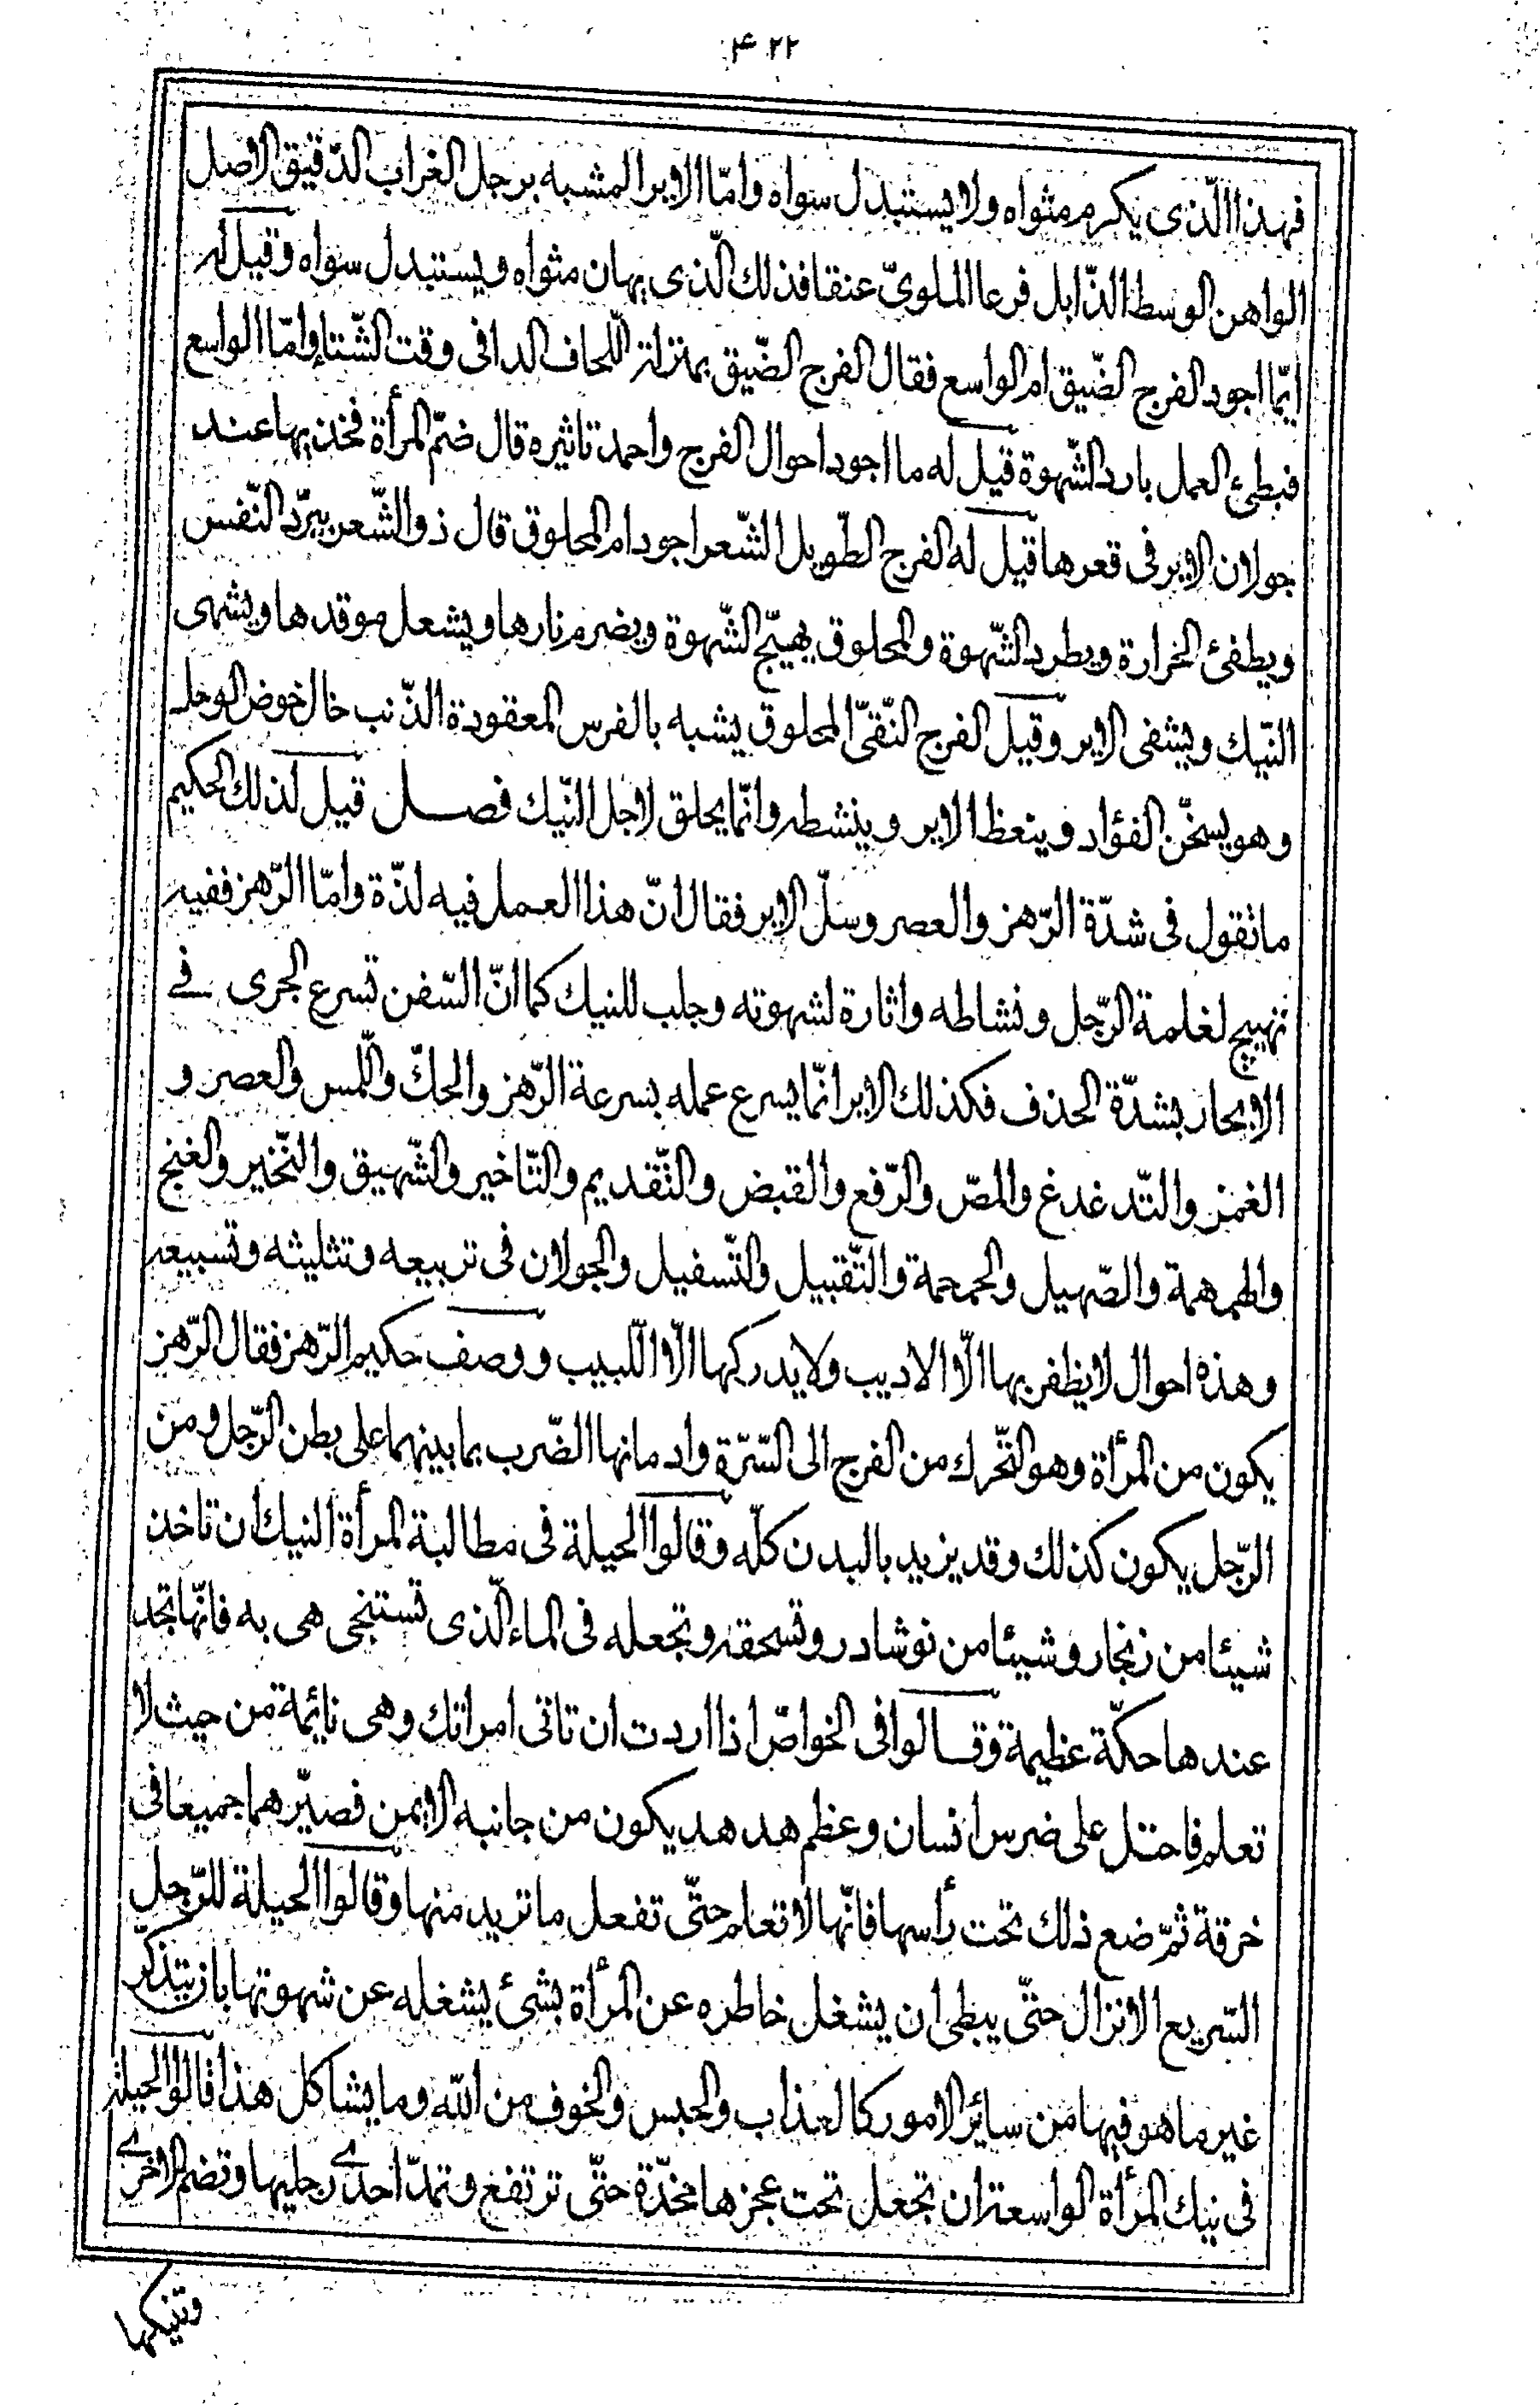 ۴۲۲
فهذا الّذى يكرم مثواه ولا يستبدل سواه وامّا الاير المشبه برجل الغراب الدّقيق الاصل
الواهن الوسط الذّابل فرعا الملوىّ عنقا فذلك الّذى يهان مثواه ويستبدل سواه وقيل له
ايّما اجود الفرج الضّيق ام الواسع فقال الفرج الضّيق بمنزلة اللّحاف الدافى وقت الشّتاء وامّا الواسع
فبطئ العمل بارد الشّهوة قيل له ما اجود احوال الفرج واحمد تاثيره قال ضمّ المرأة فخذيها عند
جولان الاير فى قعرها قيل له الفرج الطّويل الشّعر اجود ام المحلوق قال ذو الشّعر يبرّد النّفس
ويطفئ الحرارة ويطرد الشّهوة والمحلوق يهيّج الشّهوة ويضرم نارها ويشعل موقدها ويشهى
النّيك ويشفى الاير وقيل الفرج النّقىّ المحلوق يشبه بالفرس المعقودة الذّنب حال خوض الوحل
وهو يسخّن الفؤاد وينعظ الاير وينشطه وانّما يحلق لاجل النّيك فصـل قيل لذلك الحكيم
ما تقول فى شدّة الرّهز والعصر وسلّ الاير فقال انّ هذا العمل فيه لذّة وامّا الرّهز ففيه
تهييج لغلمة الرّجل ونشاطه واثارة لشهوته وجلب للنيك كما انّ السّفن تسرع الجرى فى
الابحار بشدّة الحذف فكذلك الاير انّما يسرع عمله بسرعة الرّهز والحكّ واللّمس والعصر و
الغمز والتّدغدغ والمصّ والرّفع والقبض والتّقديم والتّاخير والشّهيق والنّخير والغنج
والهمهمة والصّهيل والحمحمة والتّقبيل والتّسفيل والجولان فى تربيعه وتثليثه وتسبيعه
وهذه احوال لا يظفر بها الّا الاديب ولا يدركها الّا اللّبيب ووصف حكيم الرّهز فقال الرّهز
يكون من المرأة وهو التّحرك من الفرج الى السّرّة وادمانها الضّرب بما بينهما على بطن الرّجل ومن
الرّجل يكون كذلك وقد يزيد بالبدن كلّه وقالوا الحيلة فى مطالبة المرأة النيك ان تاخذ
شيئا من زنجار وشيئا من نوشادر وتسحقه وتجعله فى الماء الّذى تستنجى هى به فانّها تجد
عندها حكّة عظيمة وقـالوا فى الخواصّ اذا اردت ان تاتى امراتك وهى نائمة من حيث لا
تعلم فاحتل على ضرس انسان وعظم هدهد يكون من جانبه الايمن فصيّرهما جميعا فى
خرقة ثمّ ضع ذلك تحت رأسها فانّها لا تعلم حتّى تفعل ما تريد منها وقالوا الحيلة للرّجل
السّريع الانزال حتّى يبطى ان يشغل خاطره عن المرأة بشئ يشغله عن شهوتها بان يتذكّر
غير ما هو فيها من سائر الامور كالعذاب والحبس والخوف من اللّه وما يشاكل هذا قالوا الحيلة
فى نيك المرأة الواسعة ان تجعل تحت عجزها مخدّة حتّى ترتفع وتمدّ احدى رجليها وتضم الاخرى
وتنيكها